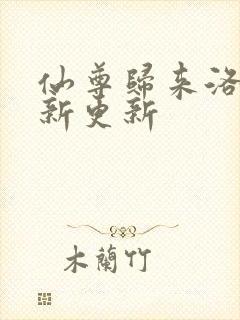 仙尊歸來洛
新更新
木蘭竹